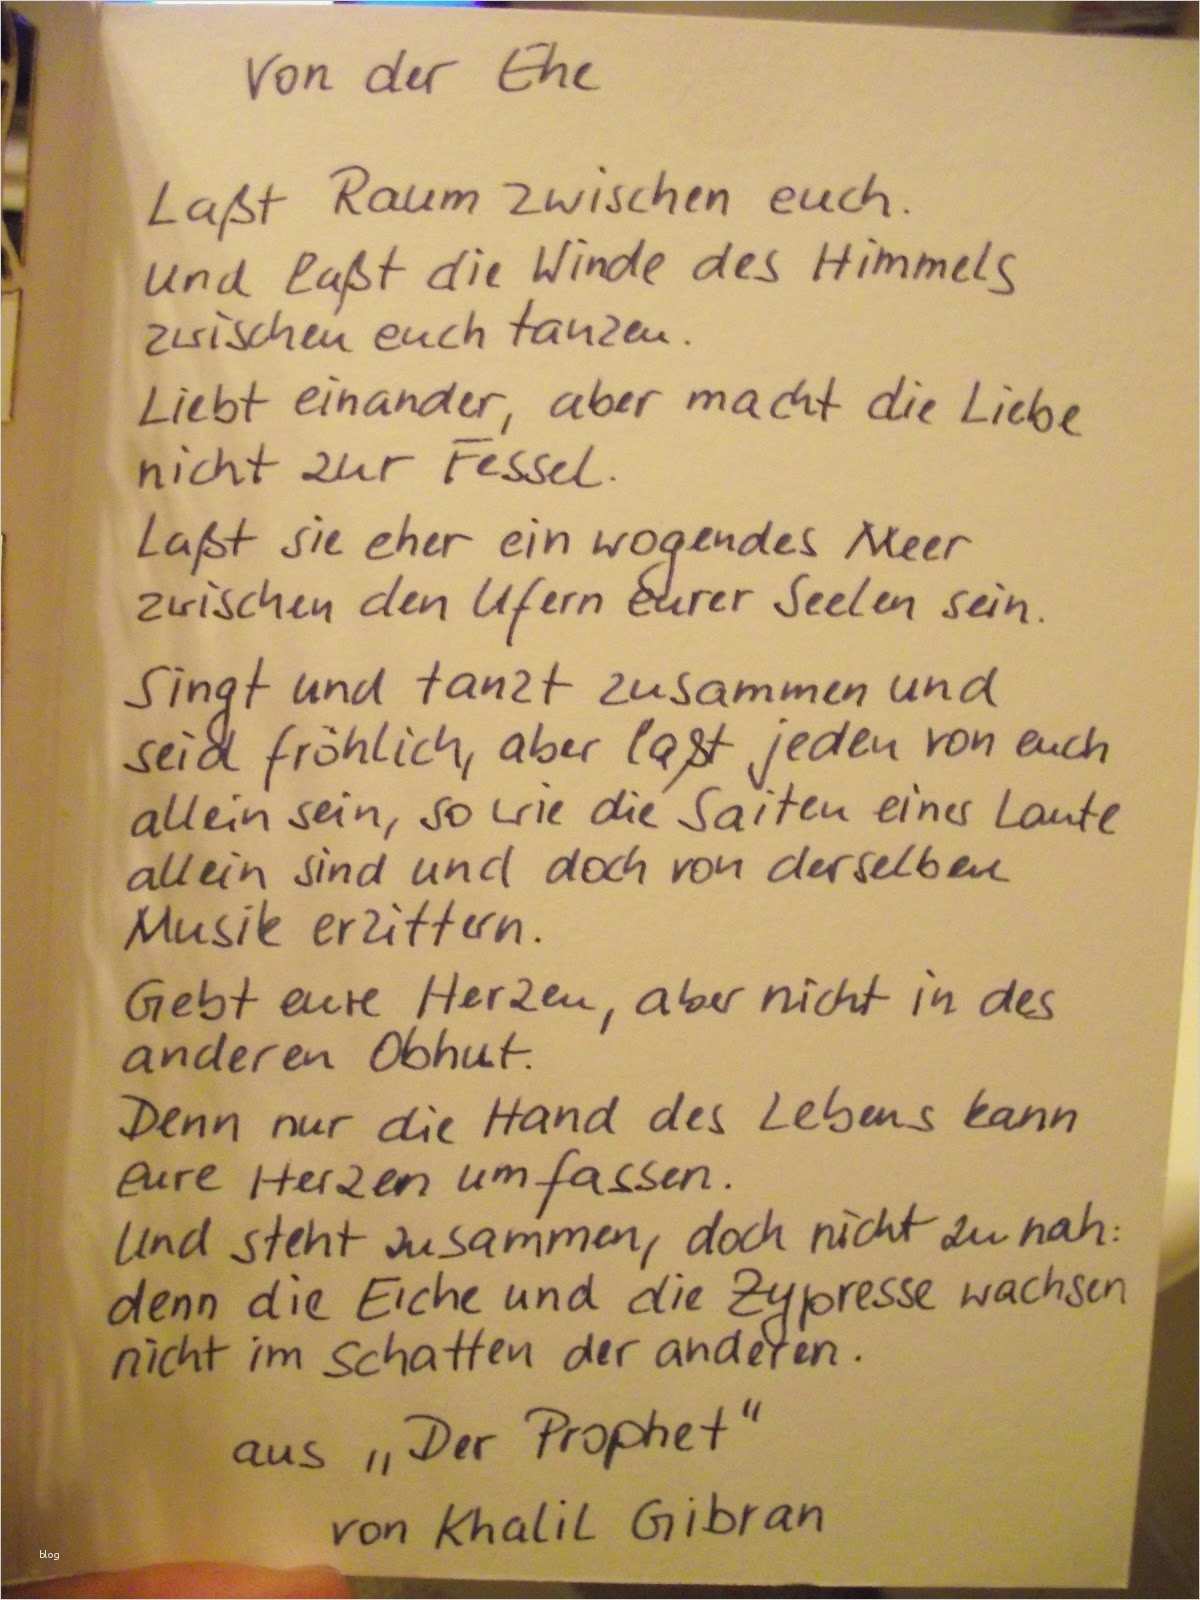 Von der Ehe
Laßt Raum zwischen euch.
Und laßt die Winde des Himmels
zwischen euch tanzen.
Liebt einander, aber macht die Liebe
nicht zur Fessel.
Laßt sie eher ein wogendes Meer
zwischen den Ufern eurer Seelen sein.
Singt und tanzt zusammen und
seid fröhlich, aber laßt jeden von euch
allein sein, so wie die Saiten einer Laute
allein sind und doch von derselben
Musik erzittern.
Gebt eure Herzen, aber nicht in des
anderen Obhut.
Denn nur die Hand des Lebens kann
eure Herzen umfassen.
Und steht zusammen, doch nicht zu nah:
denn die Eiche und die Zypresse wachsen
nicht im Schatten der anderen.
aus „Der Prophet“
von Khalil Gibran
blog